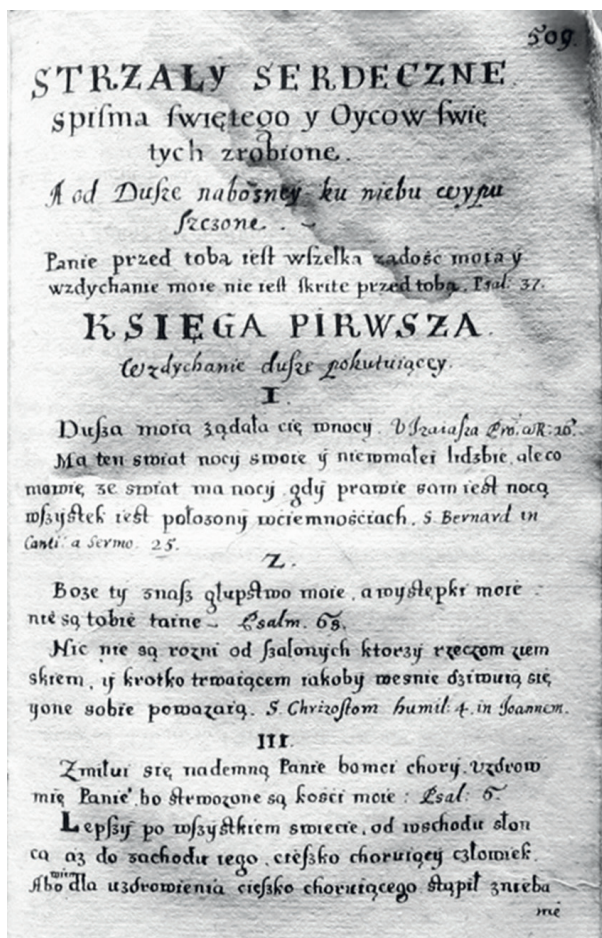 509.
STRZAŁY SERDECZNE.
spisma swiętego y Oycow swię
tych zrobione.
A od Dusze nabożney ku niebu wypu
szczone.
Panie przed tobą iest wszelka ządość moia y
wzdychanie moie nie iest skrite przed tobą. Psal: 37.
KSIĘGA PIRWSZA.
Wzdychanie dusze pokutuiączy.
I.
Dusza moia żądała cię wnocy. U Izaiasza
Ma ten swiat nocy swoie y niewmałei liczbie, ale co
mowię, ze swiat ma nocy, gdy prawie sam iest nocą
wszystek iest położony wciemnościach. S. Bernard in
Canti: a Sermo. 25.
2.
Boze ty znasz głupstwo moie, a występki moie
nie są tobie taine. Psalm. 68.
Nic nie są rozni od szalonych ktorzy rzeczom ziem
skiem, y krotko trwaiącem iakoby wesnie dziwuią się
yone sobie poważaią. S. Chrizostom humil: 4. in Joannem.
III.
Zmiłui się nademną Panie bomci chory. Uzdrow
mię Panie, bo strwozone są kości moie: Psal: 6.
Lepszy po wszystkiem swiecie, od wschodu słon
ca az do zachodu iego, cięszko choruiący człowiek.
Abo wiem dla uzdrowienia cięszko choruiącego stąpił znieba
me